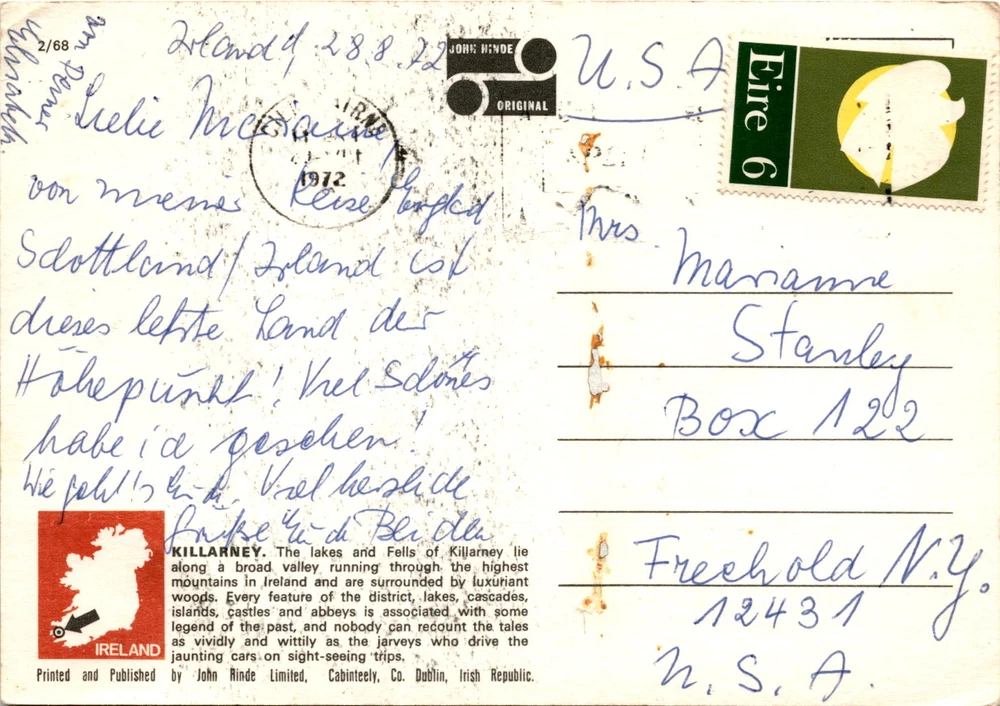 2/68
Irland, 28.8.72
Liebe Marianne,
von meiner Reise Engld
Schottland/Irland ist
dieses letzte Land der
Höhepunkt! Viel Schönes
habe ich gesehen!
Wie geht's Euch. Viel herzliche
Grüße Euch Beiden
Elisabeth
JOHN HINDE
ORIGINAL
1972
U.S.A
Eire 6
Mrs
Marianne
Stanley
Box 122
Freehold N.Y.
12431
U. S. A.
IRELAND
KILLARNEY. The lakes and Fells of Killarney lie
along a broad valley running through the highest
mountains in Ireland and are surrounded by luxuriant
woods. Every feature of the district, lakes, cascades,
islands, castles and abbeys is associated with some
legend of the past, and nobody can recount the tales
as vividly and wittily as the jarveys who drive the
jaunting cars on sight-seeing trips.
Printed and Published by John Hinde Limited, Cabinteely, Co. Dublin, Irish Republic.